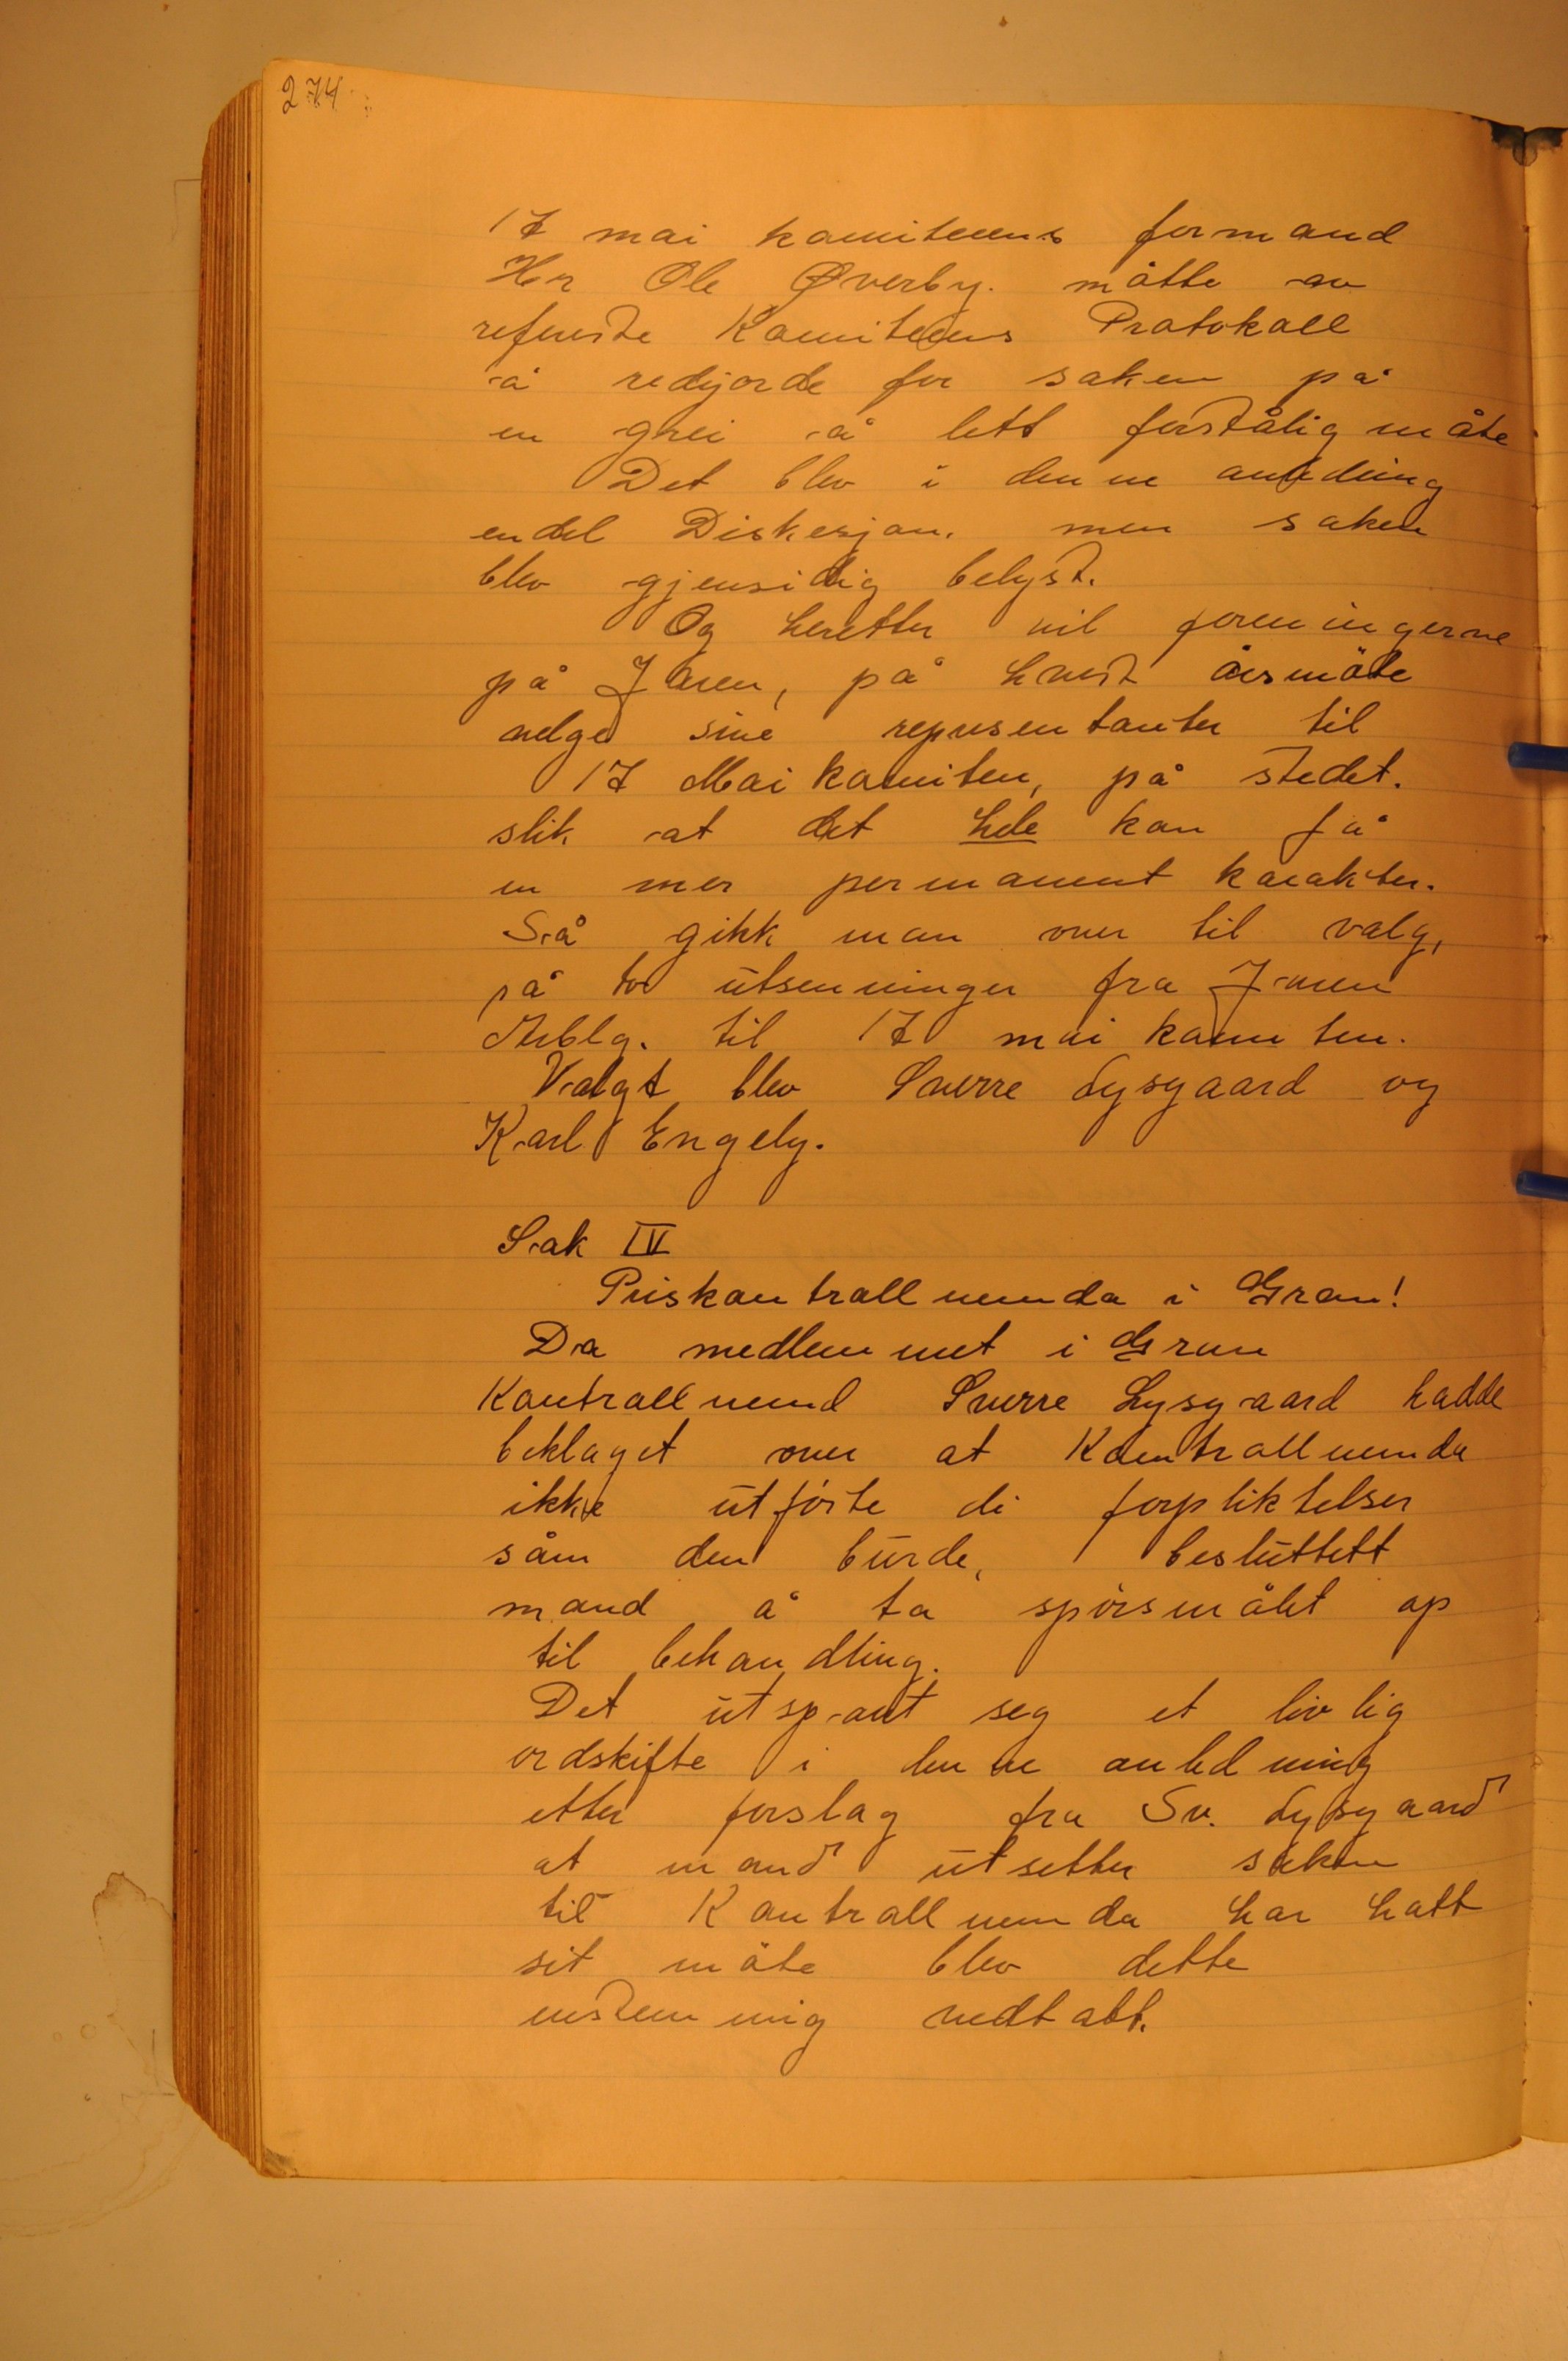 274
17 mai komiteens formand
Hr Ole Øverby. møtte av
referste Komiteens Protokoll
å redgjorde for saken på
en grei å lett forstålig måte
Det blev i denne anledning
endel Diskesjon. men saken
blev gjensidig belyst.
Og heretter vil foreningerne
på Jaren, på hvert årsmøte
velge sine representanter til
17 Mai komiten, på stedet.
slik at det hele kan få
en mer permanent karakter.
Så gikk man over til valg,
på to utsenninger fra Jaren
Arblg. til 17 mai komiten.
Valgt blev Sverre Lysgaard og
Karl Engely.
Sak IV
Priskontrollnemda i Gran!
Da medlemmet i Gran
Kontrollnemd Sverre Lysgaard hadde
beklaget over at Kontrollnemda
ikke utførte di forpliktelser
såm den burde, besluttett
mand å ta spørsmålet op
til behandling.
Det utspant seg et livlig
ordskifte i denne anledning
etter forslag fra Sv. Lysgaard
at mand utsetter saken
til Kontrollnemda har hatt
sit møte blev dette
enstemmig vedtatt.